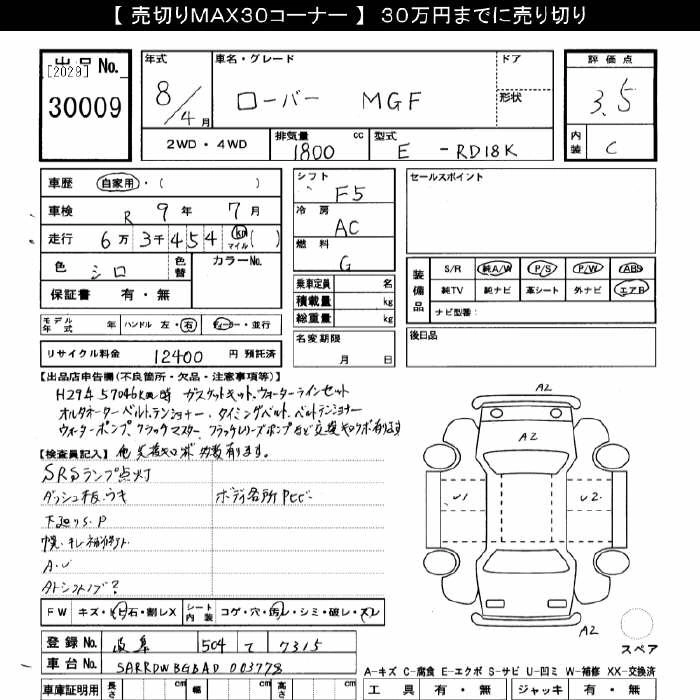 【 売切りMAX30コーナー 】 30万円までに売り切り
出品 No.
[2029]
30009
年式
8/4月
車名・グレード
ローバー MGF
ドア
形状
評価点
3.5
内装 C
2WD・4WD
排気量 1800 cc
型式 E -RD18K
車歴 自家用・( )
車検 R 9年 7月
走行 6万3千454 km マイル ( )
色 シロ 色替
カラーNo.
保証書 有・無
シフト F5
冷房 AC
燃料 G
乗車定員 名
積載量 kg
総重量 kg
名変期限 月 日
セールスポイント
装備品
S/R 純A/W P/S P/W ABS
純TV 純ナビ 革シート 外ナビ エアB
ナビ型番:
後日品
モデル年式 年 ハンドル 左・右 ディーラー・並行
リサイクル料金 12400 円 預託済
【出品店申告欄(不良箇所・欠品・注意事項等)】
H29.4 57046km時 ガスケットキット.ウォーターラインセット
オルタネーターベルト.テンショナー.タイミングベルト.ベルトテンショナー
ウォーターポンプ.クラックマスター.
【検査員記入】
SRSランプ点灯
ダッシュ板.ウキ
ボディ各所PCビー
下廻りS.P
幌.キレ補修外
A.U
FW キズ・トビ石・割レX シート内装 コゲ・穴・汚レ・シミ・破レ・スレ
登録No. 岐阜 504 て 7315
車台No. SARRDWBGBAD 003778
車庫証明用 長さ cm 幅 cm 高さ cm
A2
A2
U1
U2
A2
スペア
A-キズ C-腐食 E-エクボ S-サビ U-凹ミ W-補修 XX-交換済
工具 有・無 ジャッキ 有・無